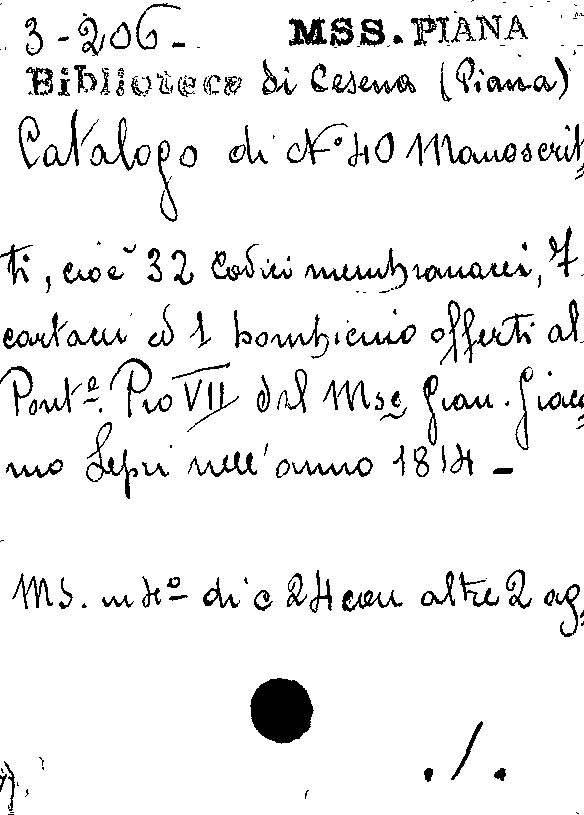 3-206- MSS. PIANA
Biblioteca di Cesena (Piana)
Catalogo di N° 40 Manoscrit=
ti, cioè 32 Codici membranacei, 7
cartacei ed 1 bombicino offerti al
Pont.e Pio VII dal Mse Gian. Giaco=
mo Lepri nell'anno 1814 -
MS. in 4° di c 24 con altre 2 ag=
./.